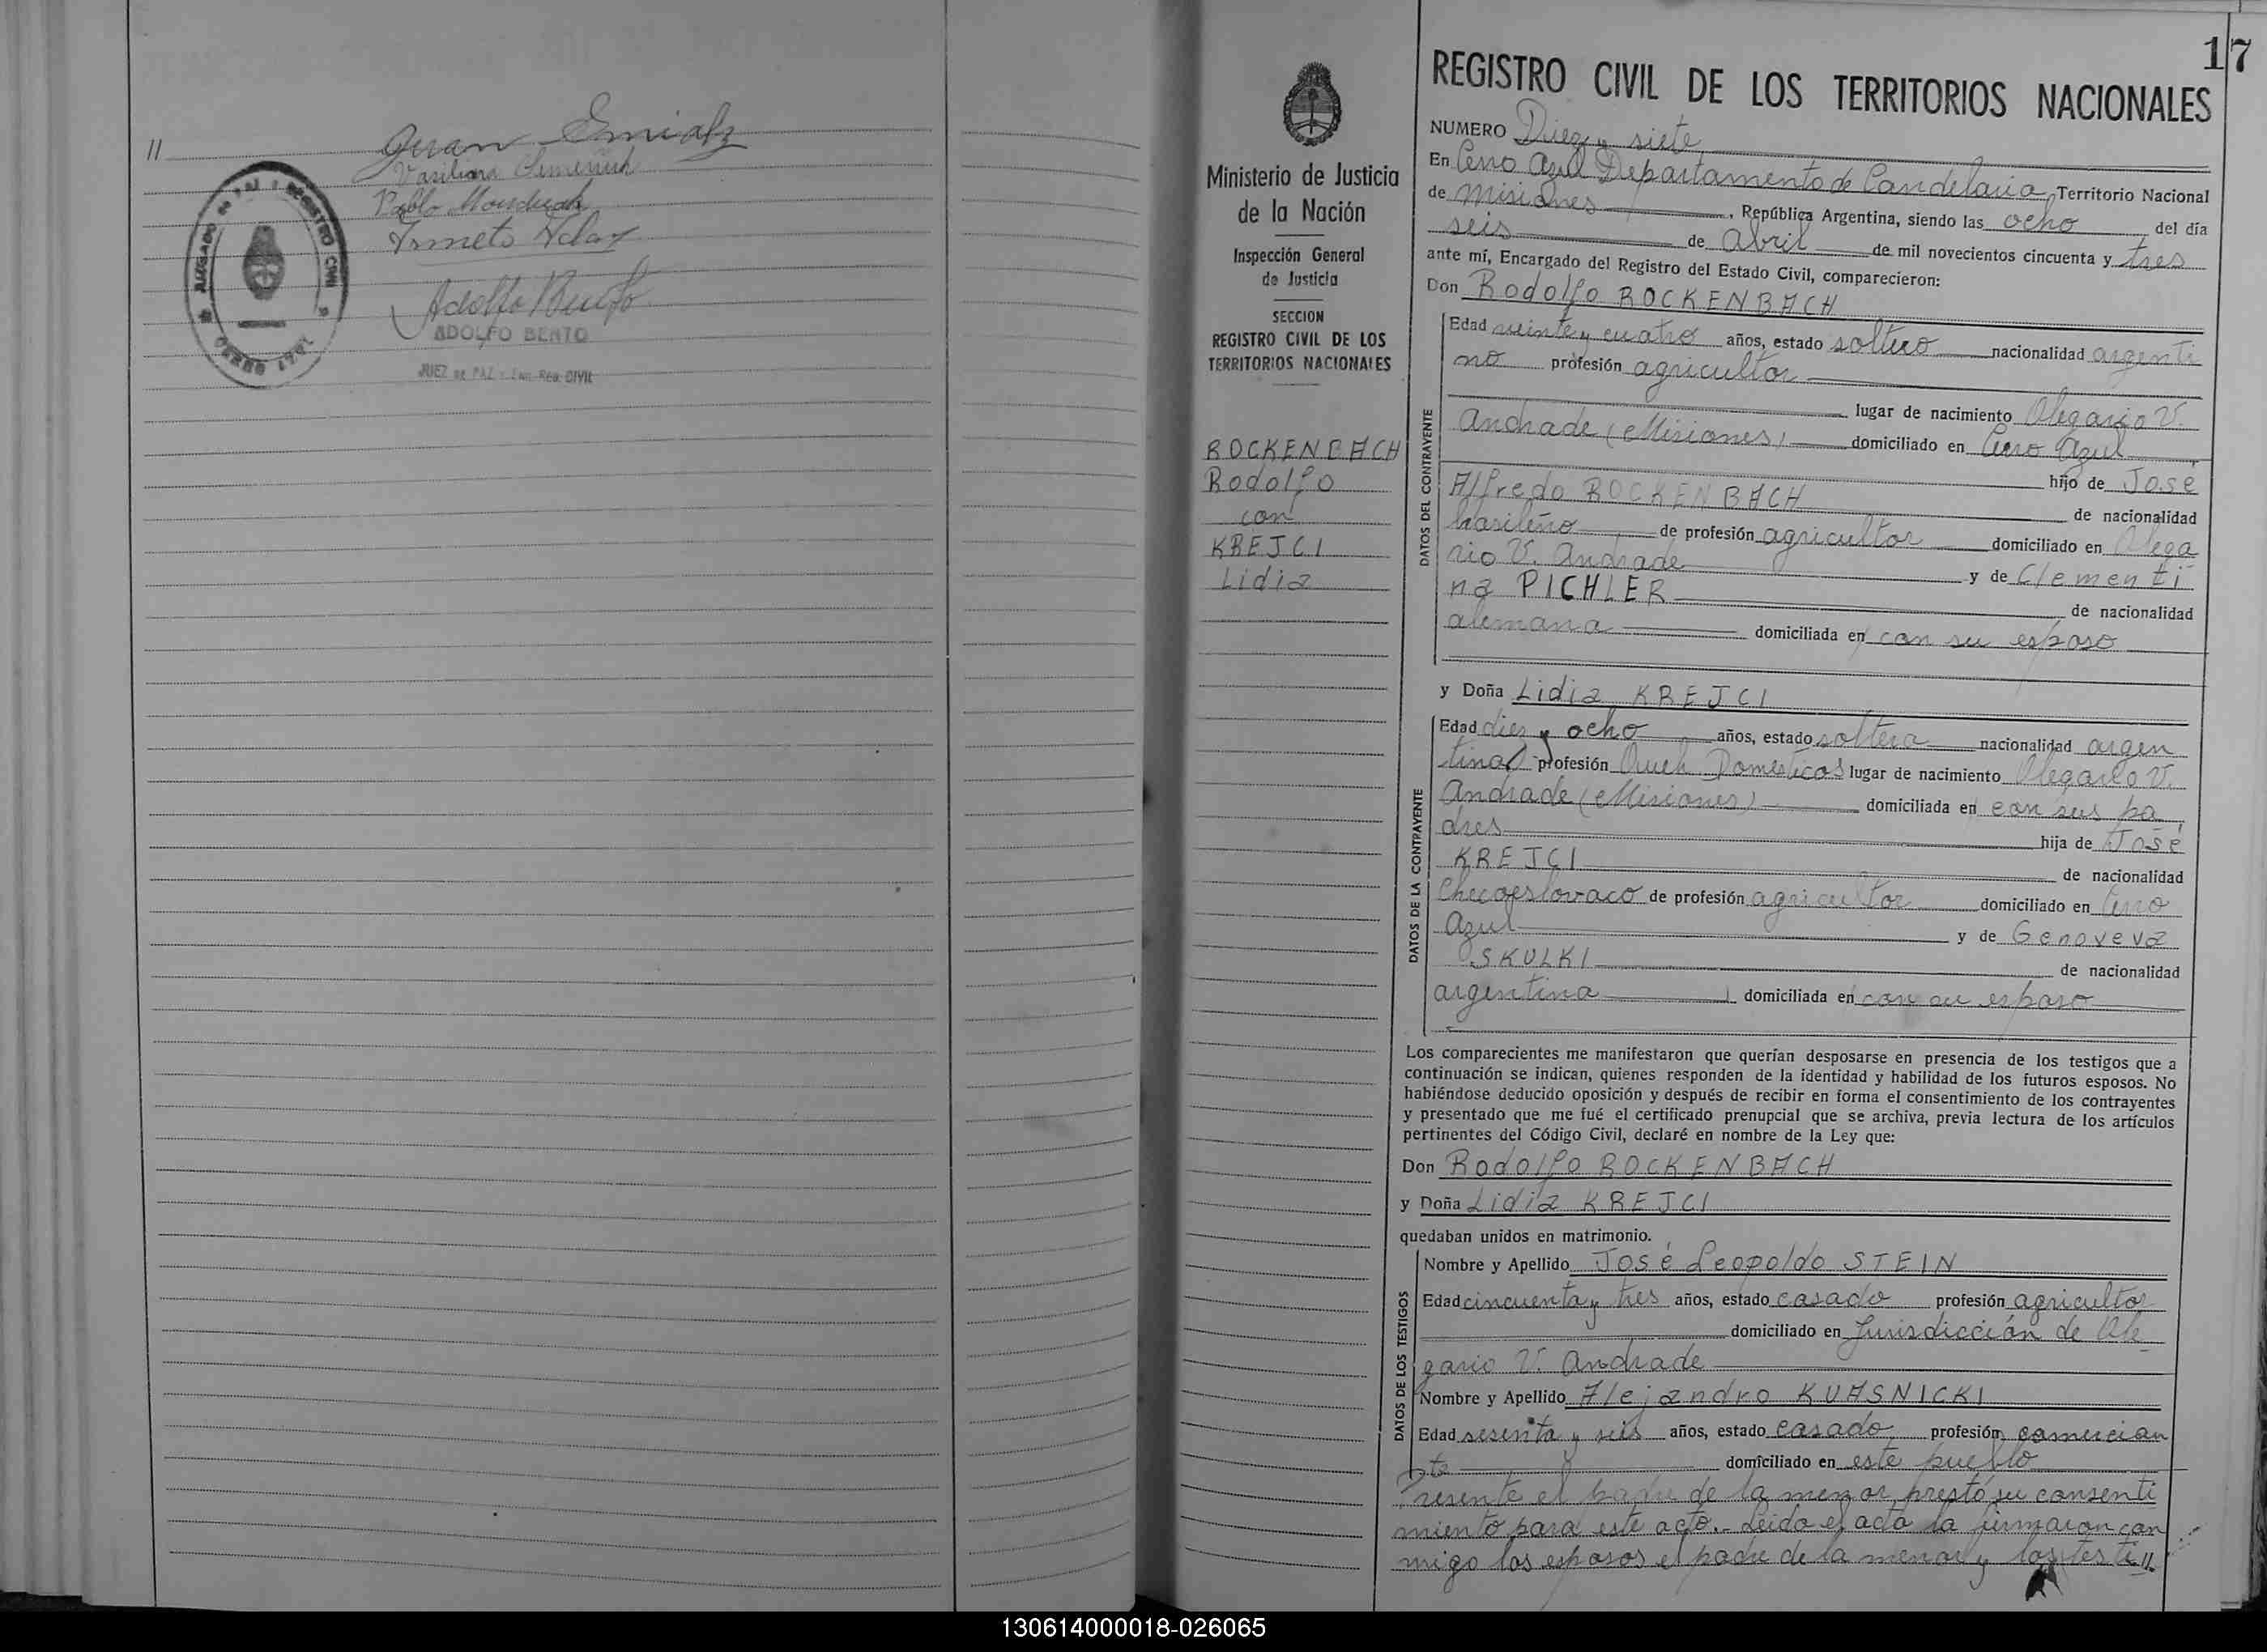 //
Juan
Vasiliana
Pablo
ADOLFO BENTO
JUEZ DE PAZ y Enc. Reg. CIVIL
JUZGADO DE PAZ Y REGISTRO CIVIL
CERRO AZUL
17
Ministerio de Justicia
de la Nación
Inspección General
de Justicia
SECCION
REGISTRO CIVIL DE LOS
TERRITORIOS NACIONALES
ROCKENBACH
Rodolfo
con
KREJCI
Lidia
REGISTRO CIVIL DE LOS TERRITORIOS NACIONALES
NUMERO Diez y siete
En Cerro Azul Departamento de Candelaria Territorio Nacional
de Misiones, República Argentina, siendo las ocho del día
seis de Abril de mil novecientos cincuenta y tres
ante mí, Encargado del Registro del Estado Civil, comparecieron:
Don Rodolfo ROCKENBACH
DATOS DEL CONTRAYENTE
Edad veinte y cuatro años, estado soltero nacionalidad argenti
no profesión agricultor
lugar de nacimiento Olegario V.
Andrade (Misiones) domiciliado en Cerro Azul
hijo de José
Alfredo ROCKENBACH de nacionalidad
brasileño de profesión agricultor domiciliado en Olega
rio V. Andrade y de Clementi
na PICHLER de nacionalidad
alemana domiciliada en con su esposo
y Doña Lidia KREJCI
DATOS DE LA CONTRAYENTE
Edad diez y ocho años, estado soltera nacionalidad argen
tina profesión Queh. Domésticos lugar de nacimiento Olegario V.
Andrade (Misiones) domiciliada en con sus pa
dres hija de José
KREJCI de nacionalidad
Checoeslovaco de profesión agricultor domiciliado en Cerro
Azul y de Genoveva
SKULKI de nacionalidad
argentina domiciliada en con su esposo
Los comparecientes me manifestaron que querían desposarse en presencia de los testigos que a
continuación se indican, quienes responden de la identidad y habilidad de los futuros esposos. No
habiéndose deducido oposición y después de recibir en forma el consentimiento de los contrayentes
y presentado que me fué el certificado prenupcial que se archiva, previa lectura de los artículos
pertinentes del Código Civil, declaré en nombre de la Ley que:
Don Rodolfo ROCKENBACH
y Doña Lidia KREJCI
quedaban unidos en matrimonio.
DATOS DE LOS TESTIGOS
Nombre y Apellido José Leopoldo STEIN
Edad cincuenta y tres años, estado casado profesión agricultor
domiciliado en Jurisdicción de Ole
gario V. Andrade
Nombre y Apellido Alejandro KUASNICKI
Edad sesenta y seis años, estado casado profesión comercian
te domiciliado en este pueblo
Presente el padre de la menor prestó su consenti
miento para este acto.- Leida el acta la firmaron con
migo los esposos el padre de la menor y los testi//
130614000018-026065